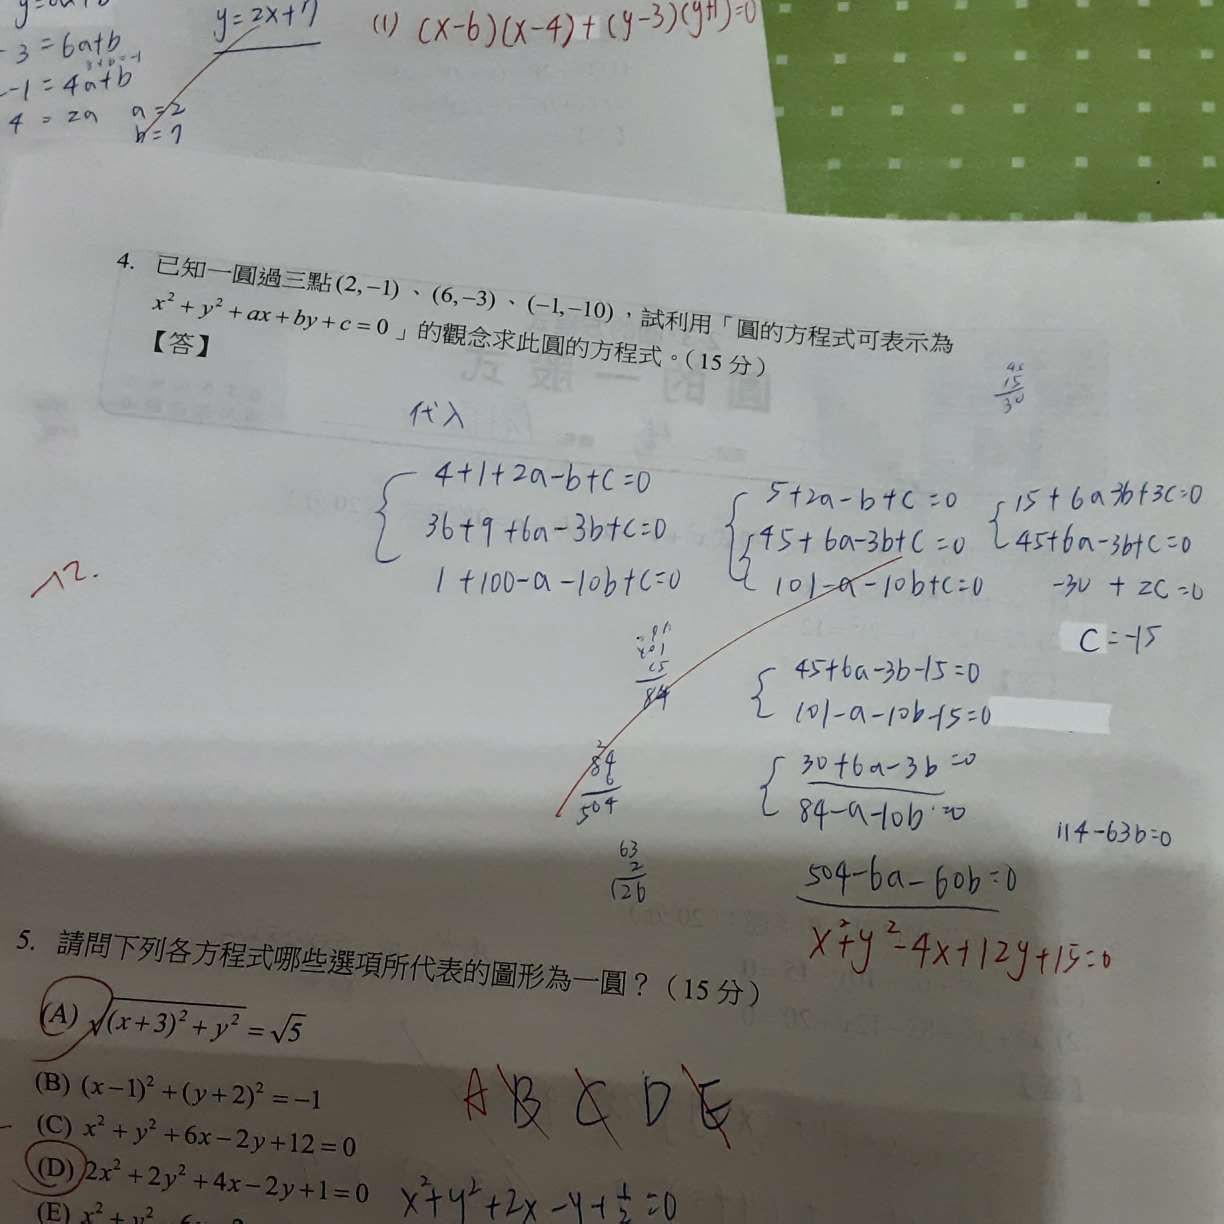 -3=6a+b
-1=4a+b
4=2a a=2
b=7
y=2x+7
(1) (x-6)(x-4)+(y-3)(y+1)=0
4. 已知一圓過三點(2,-1)、(6,-3)、(-1,-10),試利用「圓的方程式可表示為
x²+y²+ax+by+c=0」的觀念求此圓的方程式。(15分)
【答】
15
30
代入
4+1+2a-b+c=0
36+9+6a-3b+c=0
1+100-a-10b+c=0
5+2a-b+c=0
45+6a-3b+c=0
101-a-10b+c=0
15+6a-3b+3c=0
45+6a-3b+c=0
-30+2c=0
c=-15
12.
45+6a-3b-15=0
101-a-10b-15=0
101
15
84
84
6
504
63
2
126
30+6a-3b=0
84-a-10b=0
504-6a-60b=0
114-63b=0
x²+y²-4x+12y+15=0
5. 請問下列各方程式哪些選項所代表的圖形為一圓?(15分)
(A) √((x+3)²+y²)=√5
(B) (x-1)²+(y+2)²=-1
(C) x²+y²+6x-2y+12=0
(D) 2x²+2y²+4x-2y+1=0
(E) x²+y²
A B C D E
x²+y²+2x-y+1/2=0